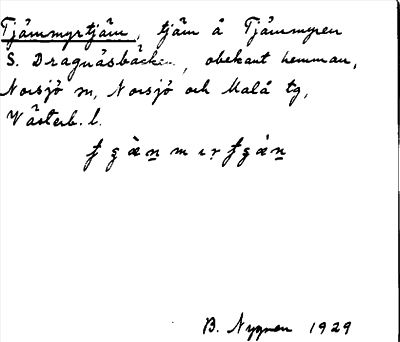 Tjärnmyrtjärn, tjärn å Tjärnmyren
S. Dragnäsbäcken, obekant hemman,
Norsjö sn, Norsjö och Malå tg,
Västerb. l.
B. Nygren 1929